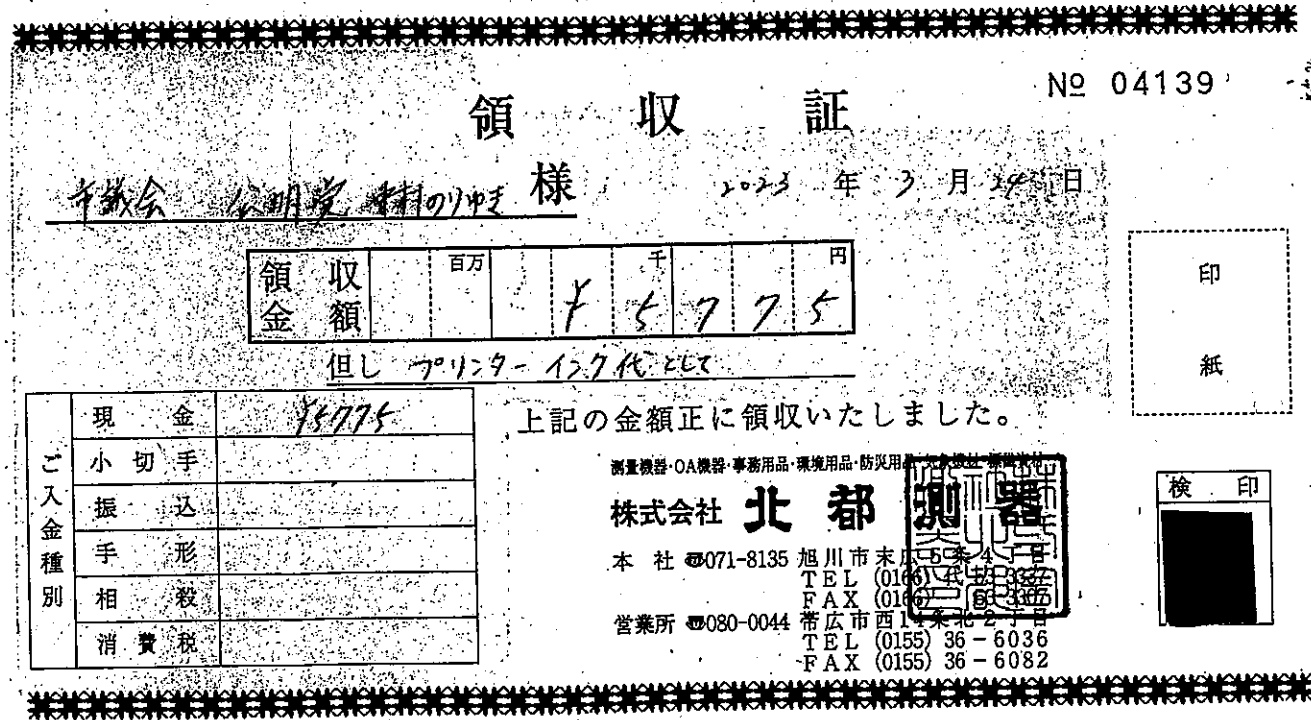 № 04139
領収証
市議会 公明党 のりゆき 様
2023年3月24日
領収金額 百万 千 円
¥5775
但し プリンターインク代として
印紙
上記の金額正に領収いたしました。
ご入金種別
現金 ¥5775
小切手
振込
手形
相殺
消費税
測量機器・OA機器・事務用品・環境用品・防災用品
株式会社 北都測器
本社 〒071-8135 旭川市末広5条4丁目
TEL (0166) 代
FAX (0166)
営業所 〒080-0044 帯広市西14条北2丁目
TEL (0155) 36-6036
FAX (0155) 36-6082
検印